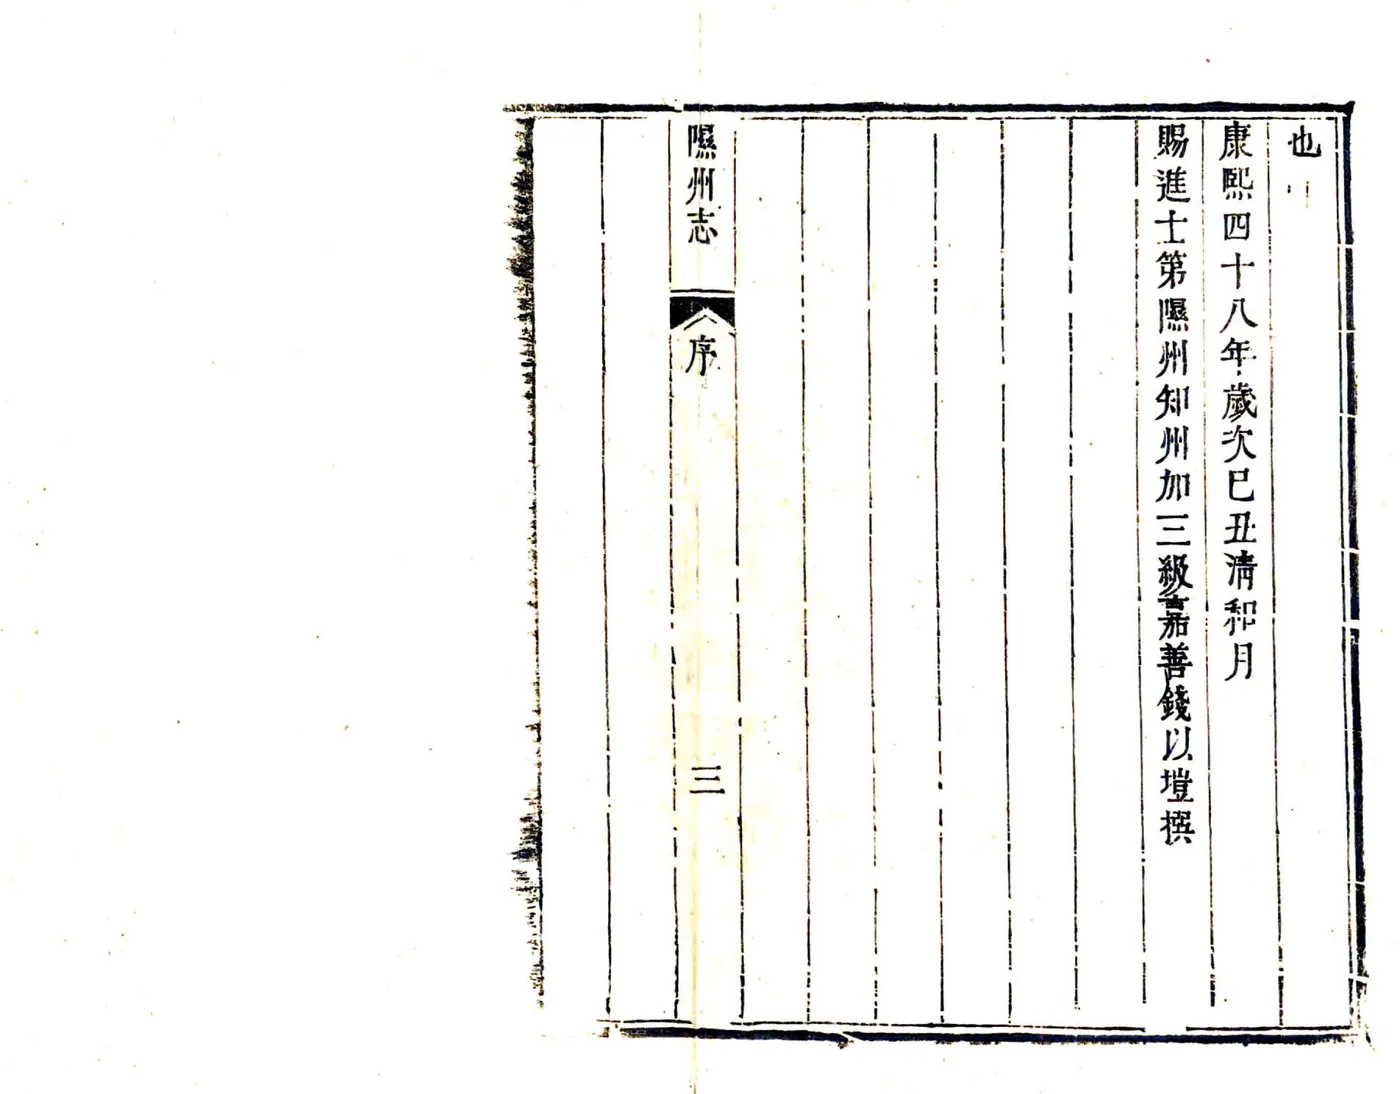 也
康熙四十八年歲次己丑清和月
賜進士第隰州知州加三級嘉善錢以塏撰
隰州志
序
三